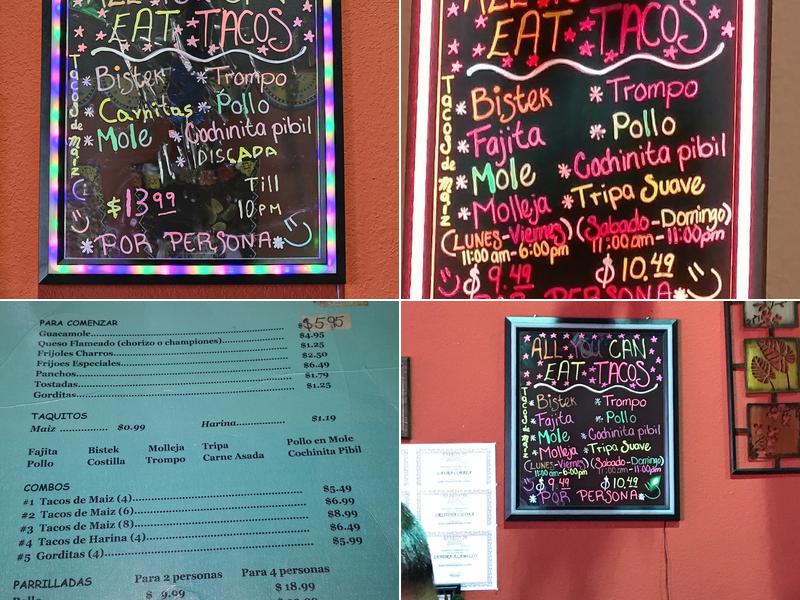 ALL YOU CAN
EAT TACOS
Tacos de Maiz
* Bistek * Trompo
Carnitas * Pollo
* Mole * Cochinita pibil
DISCADA
$13.99 Till
10PM
* POR PERSONA *
EAT TACOS
Tacos de Maiz
* Bistek * Trompo
* Fajita * Pollo
* Mole * Cochinita pibil
* Molleja * Tripa Suave
(LUNES-Viernes) (Sabado-Domingo)
11:00am-6:00pm 11:00am-11:00pm
$9.49 $10.49
POR PERSONA *
PARA COMENZAR
$5.95
Guacamole
Queso Flameado (chorizo o championes) $4.95
Frijoles Charros $1.25
Frijoes Especiales $2.50
Panchos $6.49
Tostadas $1.79
Gorditas $1.25
TAQUITOS
Maiz $0.99 Harina $1.19
Fajita Bistek Molleja Tripa Pollo en Mole
Pollo Costilla Trompo Carne Asada Cochinita Pibil
COMBOS
#1 Tacos de Maiz (4) $5.49
#2 Tacos de Maiz (6) $6.99
#3 Tacos de Maiz (8) $8.99
#4 Tacos de Harina (4) $6.49
#5 Gorditas (4) $5.99
PARRILLADAS Para 2 personas Para 4 personas
$ 9.99 $ 18.99
ALL YOU CAN
EAT TACOS
Tacos de Maiz
* Bistek * Trompo
* Fajita * Pollo
* Mole * Cochinita pibil
* Molleja * Tripa Suave
(LUNES-Viernes) (Sabado-Domingo)
11:00am-6:00pm 11:00am-11:00pm
$9.49 $10.49
* POR PERSONA *